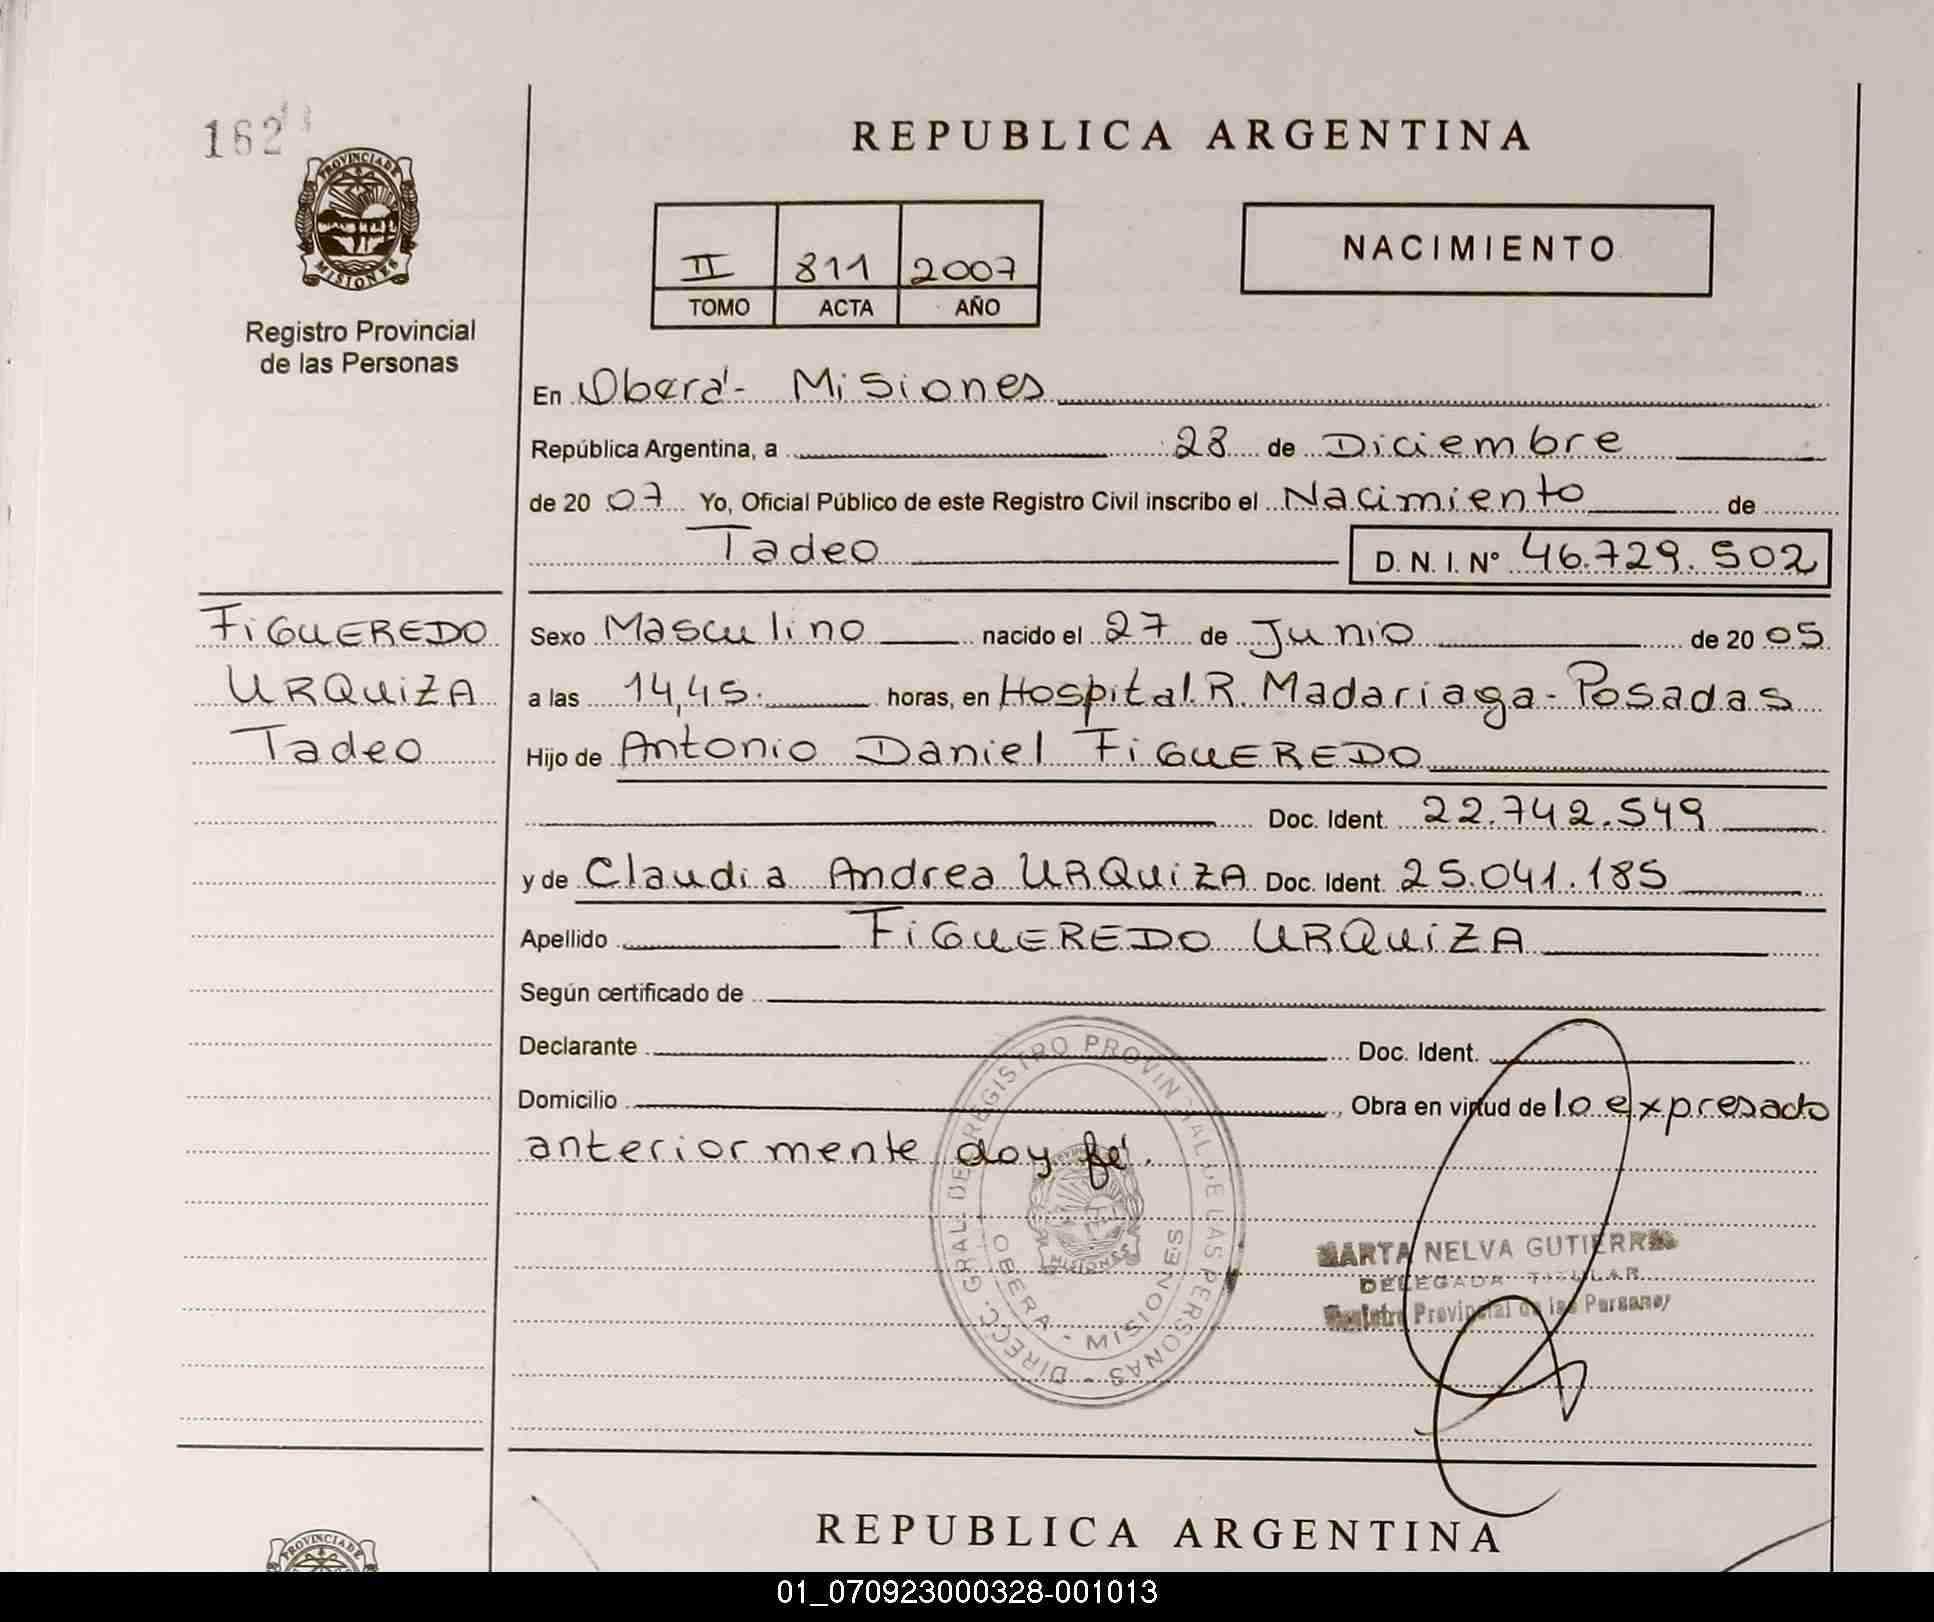 162
PROVINCIA DE
MISIONES
Registro Provincial
de las Personas
REPUBLICA ARGENTINA
II 811 2007
TOMO ACTA AÑO
NACIMIENTO
En Oberá - Misiones
República Argentina, a 28 de Diciembre
de 20 07 Yo, Oficial Público de este Registro Civil inscribo el Nacimiento de
Tadeo D. N. I. Nº 46.729.502
FIGUEREDO
URQUIZA
Tadeo
Sexo Masculino nacido el 27 de Junio de 20 05
a las 14,45. horas, en Hospital R. Madariaga - Posadas
Hijo de Antonio Daniel FIGUEREDO
Doc. Ident. 22.742.549
y de Claudia Andrea URQUIZA Doc. Ident. 25.041.185
Apellido FIGUEREDO URQUIZA
Según certificado de
Declarante Doc. Ident.
Domicilio , Obra en virtud de lo expresado
anteriormente doy fé.
DIRECC. GRAL. DE REGISTRO PROVINCIAL DE LAS PERSONAS -
OBERA - MISIONES
MISIONES
MARTA NELVA GUTIERREZ
DELEGADA TITULAR
Registro Provincial de las Personas
REPUBLICA ARGENTINA
PROVINCIA DE
01_070923000328-001013